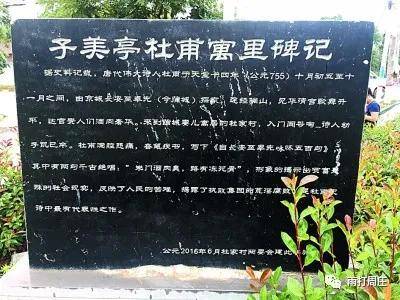 子美亭杜甫寓里碑记
据史料记载，唐代伟大诗人杜甫于天宝十四年（公元755）十月初五至十
一月之间，由京城长安至奉先（今蒲城）探家，途经骊山，见华清宫歌舞升
平，达官贵人们酒肉奢华。来到蒲城妻儿寓居的杜家村，入门闻号啕，诗人幼
子饥已卒。杜甫满腔悲痛，奋笔疾书，写下《自长安至奉先咏怀五百句》
其中有两句千古绝唱："朱门酒肉臭，路有冻死骨"，形象的揭示出贫富
殊的社会现实，反映了人民的苦难，揭露了执政集团的荒淫腐败
诗中最有代表性之作。
公元2016年6月杜家村两委会建此
雨打周庄